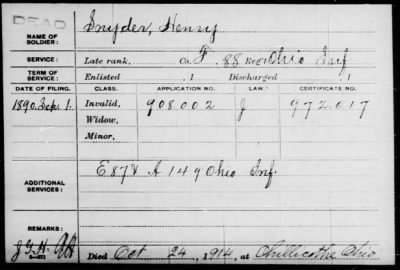 DEAD
NAME OF SOLDIER: Snyder, Henry
SERVICE: Late rank, Co. F, 88 Reg't Ohio Inf
TERM OF SERVICE: Enlisted , 1 Discharged , 1
DATE OF FILING. CLASS. APPLICATION NO. LAW. CERTIFICATE NO.
1890. Sept 1. Invalid, 908.002 J 972.017
Widow,
Minor,
ADDITIONAL SERVICES: E 87 & A 149 Ohio Inf.
REMARKS:
Died Oct 24, 1914, at Chillicothe Ohio